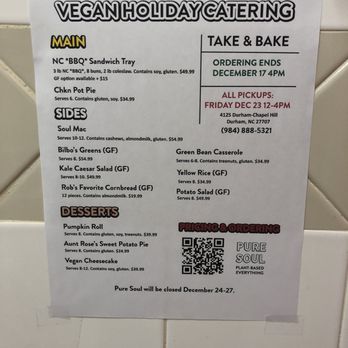 VEGAN HOLIDAY CATERING
MAIN
NC *BBQ* Sandwich Tray
3 lb NC *BBQ*, 8 buns, 2 lb coleslaw. Contains soy, gluten. $49.99
GF option available + $15
Chkn Pot Pie
Serves 6. Contains gluten, soy. $34.99
SIDES
Soul Mac
Serves 10-12. Contains cashews, almondmilk, gluten. $54.99
Bilbo's Greens (GF)
Serves 8. $54.99
Kale Caesar Salad (GF)
Serves 8-10. $49.99
Rob's Favorite Cornbread (GF)
12 pieces. Contains almondmilk. $19.99
DESSERTS
Pumpkin Roll
Serves 8. Contains gluten, soy, treenuts. $39.99
Aunt Rose's Sweet Potato Pie
Serves 8. Contains gluten. $34.99
Vegan Cheesecake
Serves 8-12. Contains soy, gluten. $39.99
TAKE & BAKE
ORDERING ENDS
DECEMBER 17 4PM
ALL PICKUPS:
FRIDAY DEC 23 12-4PM
4125 Durham-Chapel Hill
Durham, NC 27707
(984) 888-5321
Green Bean Casserole
Serves 6-8. Contains treenuts, gluten. $34.99
Yellow Rice (GF)
Serves 8. $34.99
Potato Salad (GF)
Serves 8. $49.99
PRICING & ORDERING
PURE
SOUL
PLANT-BASED
EVERYTHING
Pure Soul will be closed December 24-27.